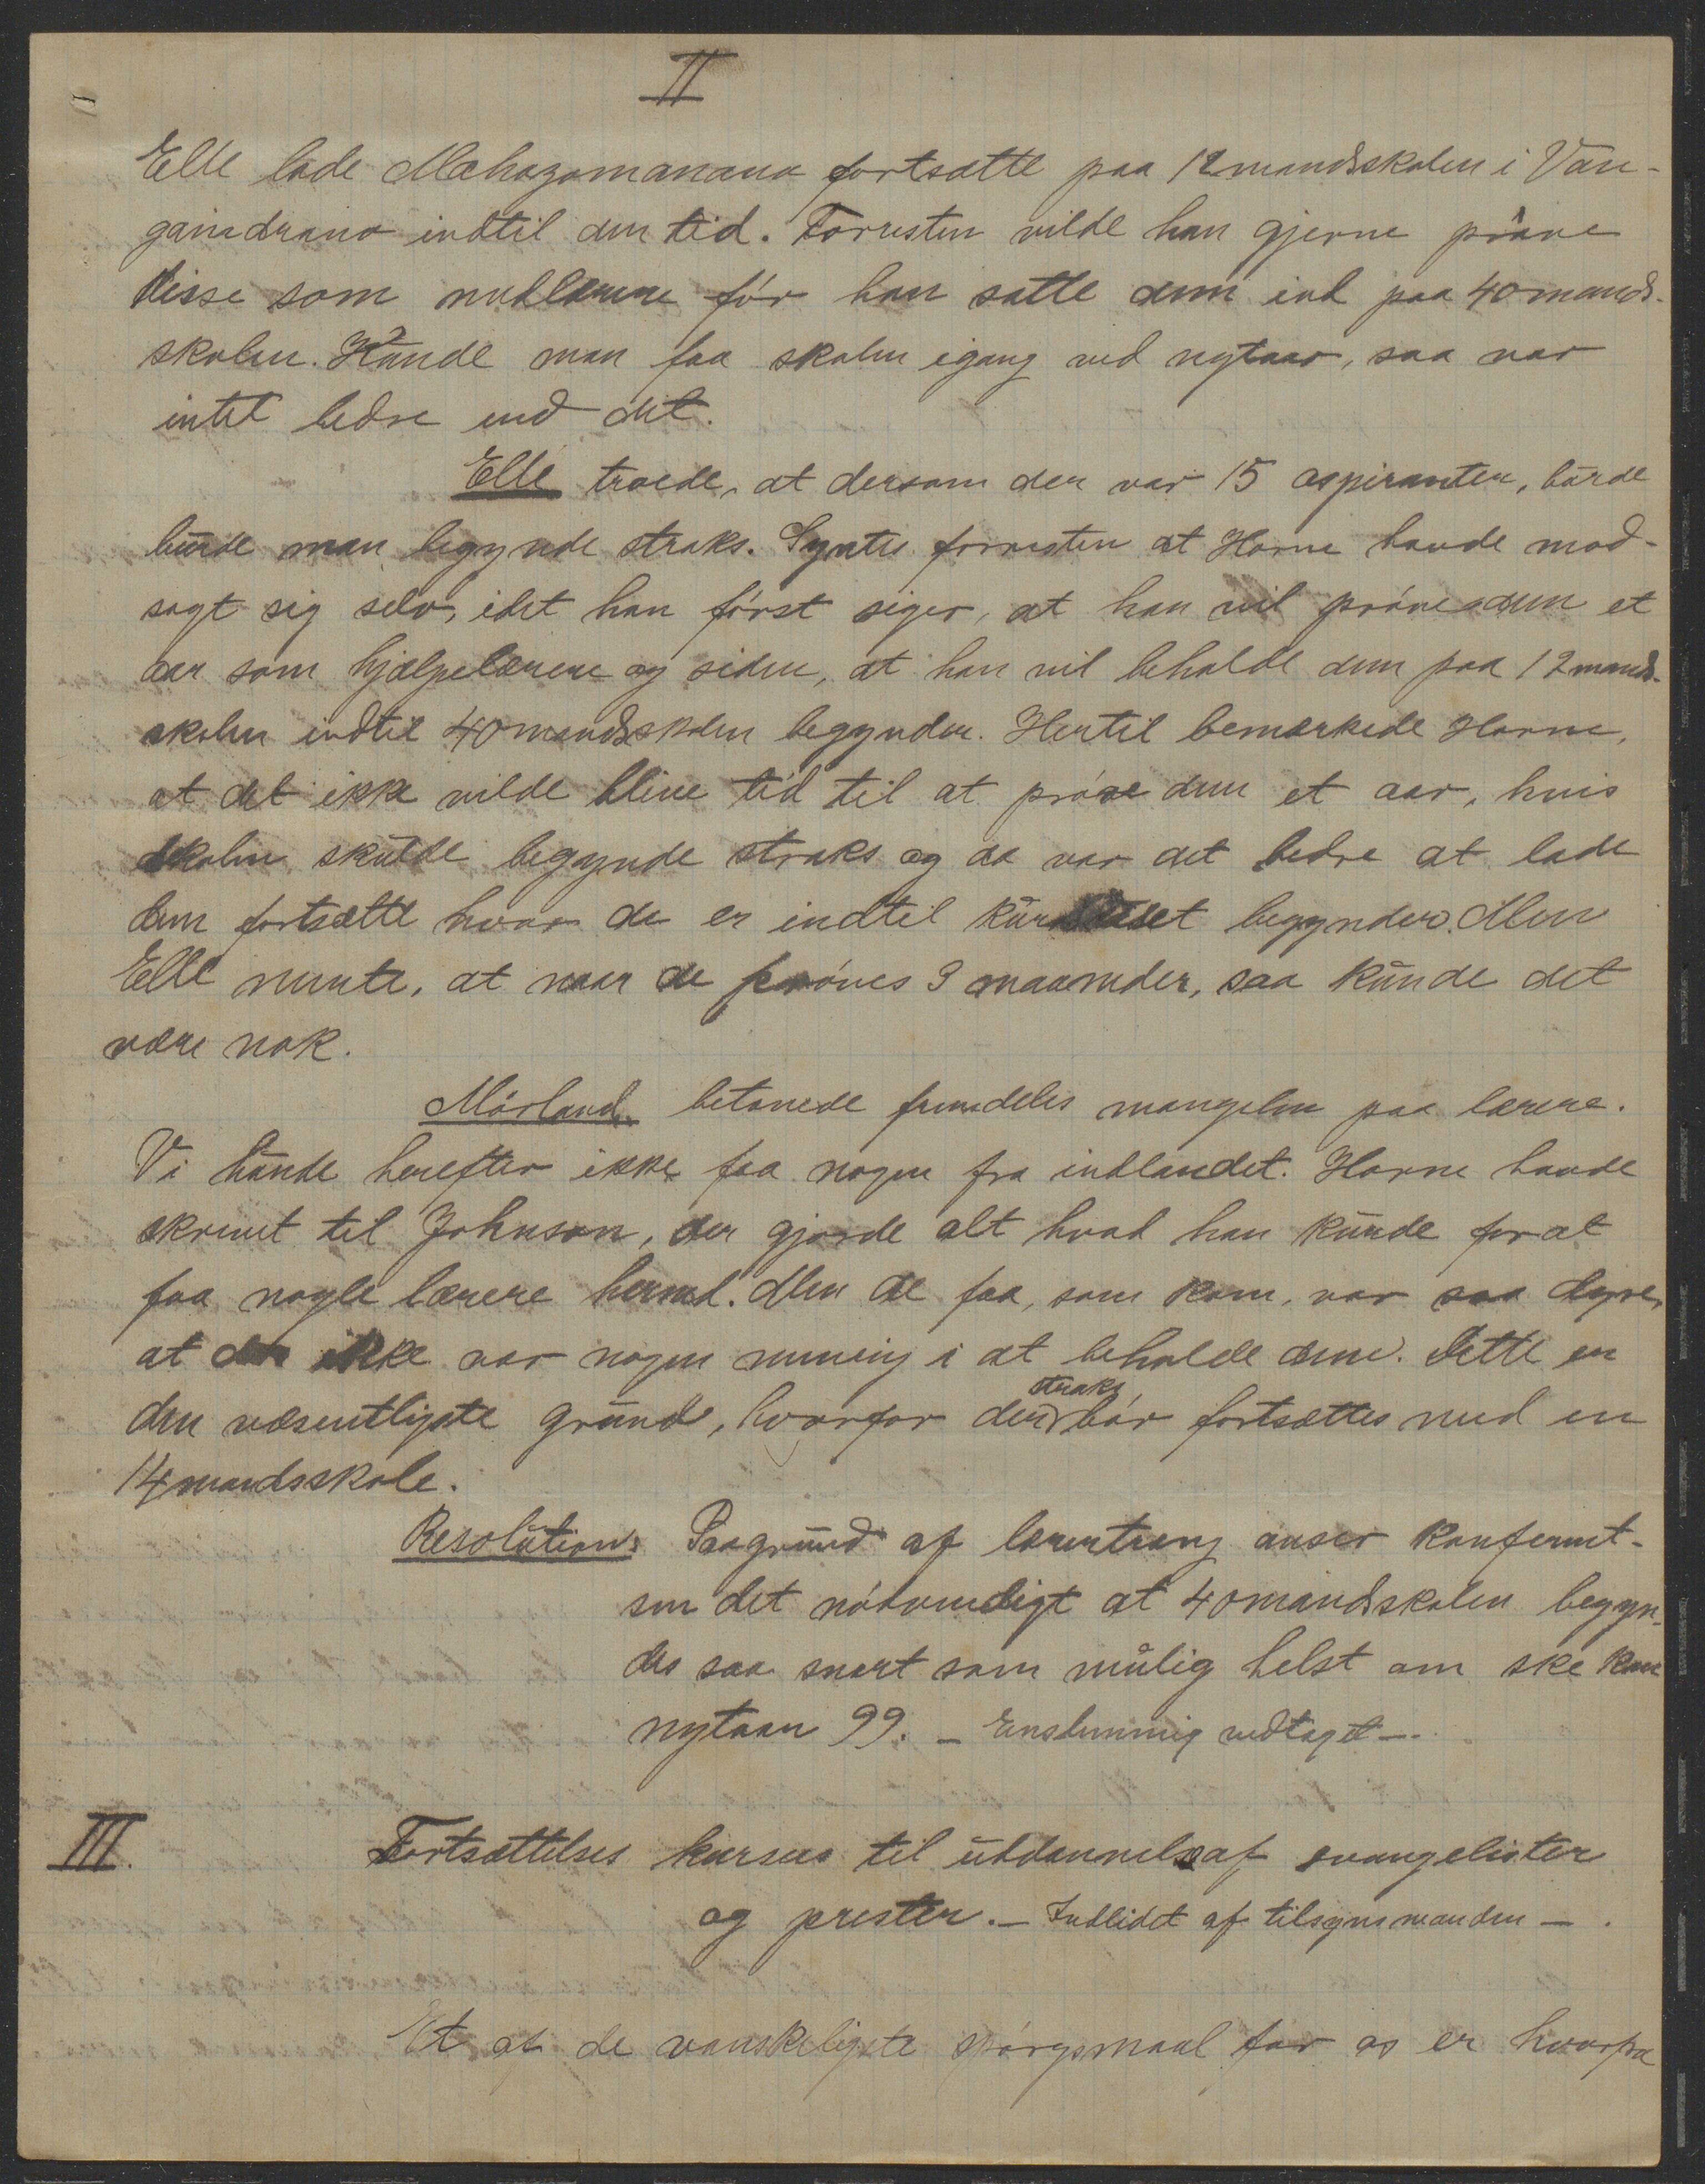 II
Elle lade Mahazomanana fortsætte paa 12mandsskolen i Van-
gaindrano indtil den tid. Forresten vilde han gjerne prøve
disse som medlærere før han satte dem ind paa 40mands-
skolen. Kunde man faa skolen igang ved nytaar, saa var
intet bedre end det.
Elle troede, at dersom der var 15 aspiranter, burde
burde man begynde straks. Syntes forresten at Horne havde mod-
sagt sig selv, idet han først siger, at han vil prøve dem et
aar som hjælpelærere og siden, at han vil beholde dem paa 12mands-
skolen indtil 40mandsskolen begynder. Hertil bemærkede Horne,
at det ikke vilde blive tid til at prøve dem et aar, hvis
skolen skulde begynde straks og da var det bedre at lade
dem fortsætte hvor de er indtil begynder. Men
Elle mente, at naar de prøves 3 maaneder, saa kunde det
være nok.
Mørland betonede fremdeles mangelen paa lærere.
Vi kunde herefter ikke faa nogen fra indlandet. Horne havde
skrevet til Johnson, der gjorde alt hvad han kunde for at
faa nogle lærere herned. Men de faa, som kom, var saa dyre,
at der ikke var nogen mening i at beholde dem. Dette er
den væsentligste grund, hvorfor der straks bør fortsættes med en
14mandsskole.
Resolution: Paagrund af lærertrang anser konferent-
sen det nødvendigt at 40mandskolen begyn-
des saa snart som mulig helst om ske kan
nytaar 99. – Enstemmig vedtaget –.
III. Fortsættelses kursus til uddannelse af evangelister
og prester. – Indlidet af tilsynsmanden – .
Et af de vanskeligste spørgsmaal for os er hvorfra